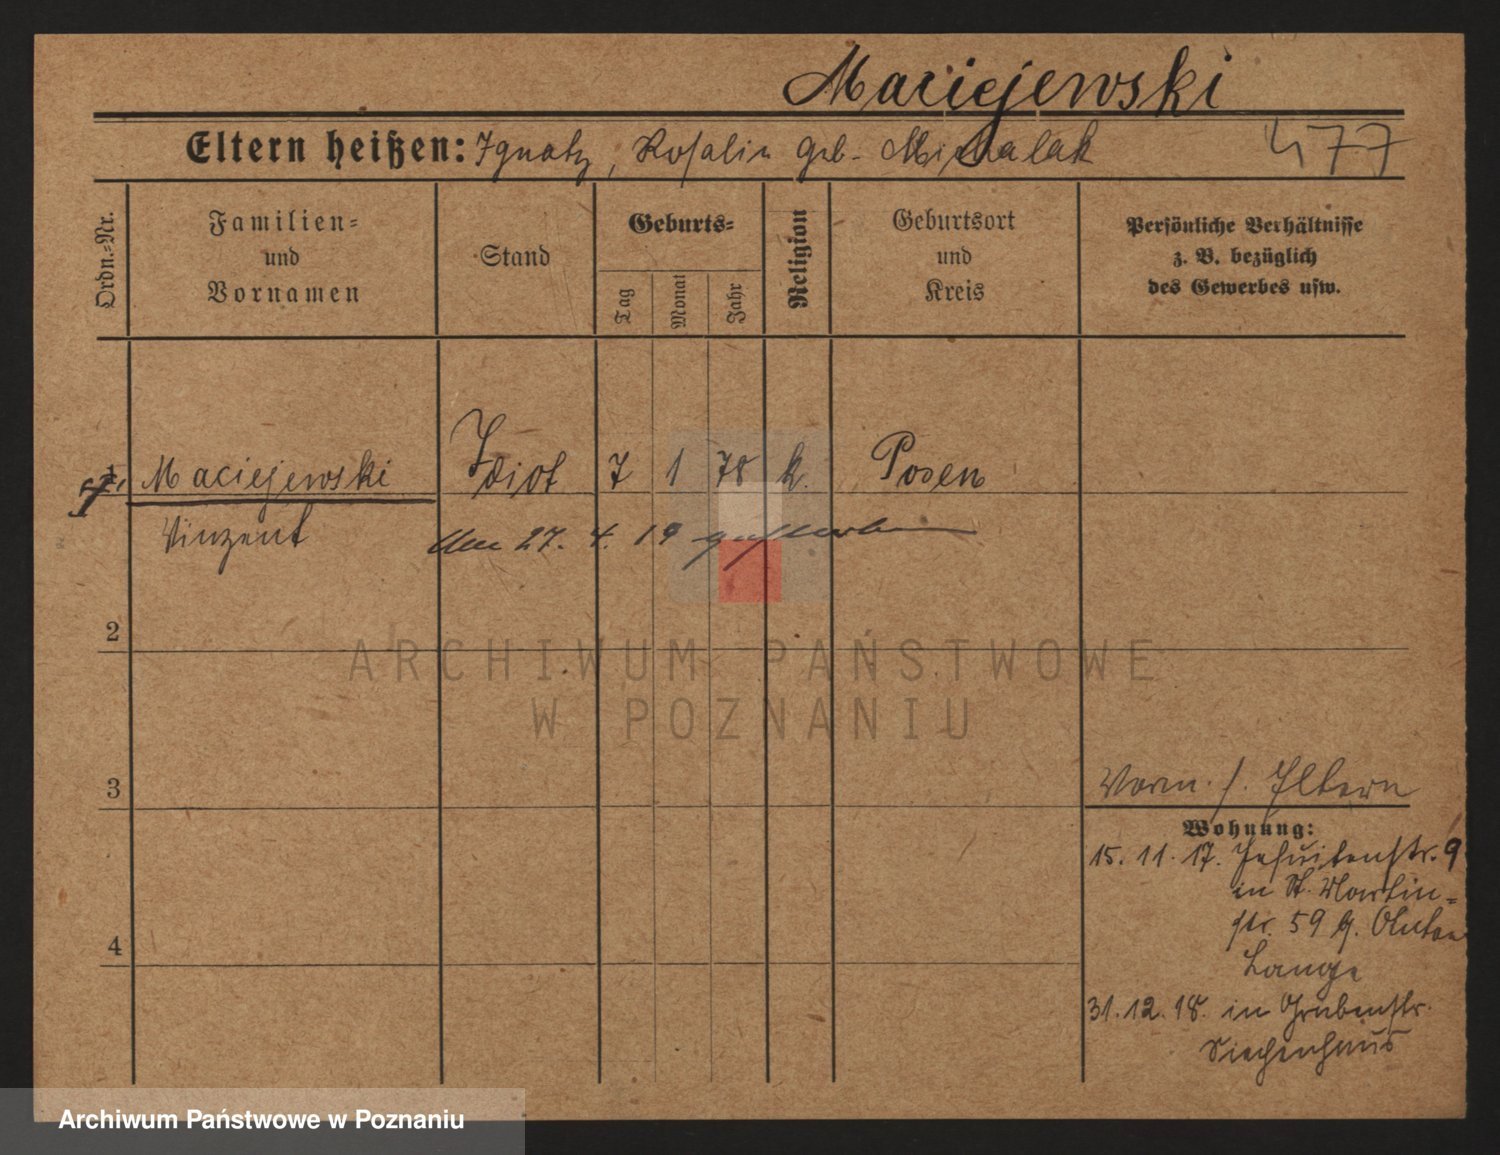 Maciejewski
Eltern heißen: Ignatz, Rosalie geb. Michalak 477
Ordn.-Nr.
Familien-
und
Vornamen
Stand
Geburts-
Tag
Monat
Jahr
Religion
Geburtsort
und
Kreis
Persönliche Verhältnisse
z. B. bezüglich
des Gewerbes usw.
1 Maciejewski Idiot 7 1 78 k. Posen
Vinzent Am 27. 4. 19 gestorben
2
ARCHIWUM PAŃSTWOWE
W POZNANIU
3 Vorm. s. Eltern
Wohnung:
15. 11. 17. Jesuitenstr. 9
in St. Martin-
4 str. 59 b. Anton
Lange
31. 12. 18. in Grabenstr.
Siechenhaus
Archiwum Państwowe w Poznaniu